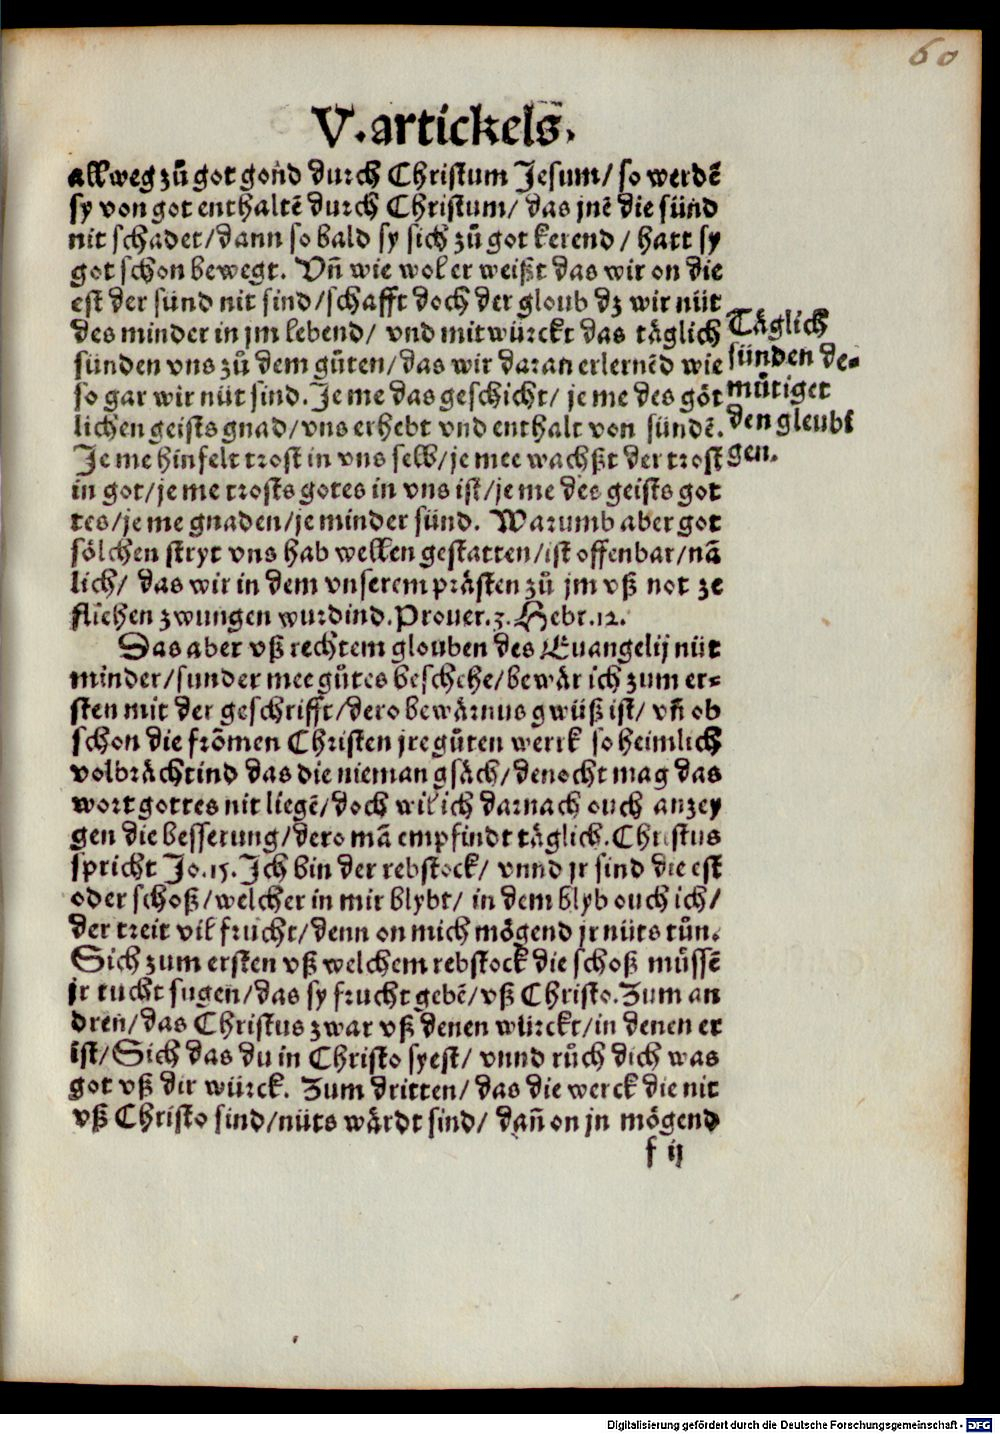 60
V. artickels.
allweg zů got gond durch Christum Jesum/ so werdẽ
sy von got enthaltẽ durch Christum/ das jnẽ die sünd
nit schadet/ dann so bald sy sich zů got kerend/ hatt sy
got schon bewegt. Vñ wie wol er weißt das wir on die
est der sünd nit sind/ schafft doch der gloub dz wir nüt
des minder in jm lebend/ vnd mitwürckt das täglich
sünden vns zů dem gůten/ das wir daran erlernẽd wie
so gar wir nüt sind. Je me das geschicht/ je me des göt
lichen geists gnad/ vns erhebt vnd enthalt von sündẽ.
Je me hinfelt trost in vns selb/ je mee wachßt der trost
in got/ je me trosts gotes in vns ist/ je me des geists got
tes/ je me gnaden/ je minder sünd. Warumb aber got
sölchen stryt vns hab wellen gestatten/ ist offenbar/ nã
lich/ das wir in dem vnserem prästen zů jm vß not ze
fliehen zwungen wurdind. Prouer. 3. Hebr. 12.
Das aber vß rechtem glouben des Euangelij nüt
minder/ sunder mee gůtes beschehe/ bewär ich zum er-
sten mit der geschrifft/ dero bewärnus gwüß ist/ vñ ob
schon die frõmen Christen jre gůten werck so heimlich
volbrächtind das die nieman gsäch/ denocht mag das
wort gottes nit liegẽ/ doch wil ich darnach ouch anzey
gen die besserung/ dero mã empfindt täglich. Christus
spricht Jo. 15. Ich bin der rebstock/ vnnd jr sind die est
oder schoß/ welcher in mir blybt/ in dem blyb ouch ich/
der treit vil frucht/ denn on mich mögend jr nüts tůn.
Sich zum ersten vß welchem rebstock die schoß müssẽ
jr fucht sugen/ das sy frucht gebẽ/ vß Christo. Zum an
dren/ das Christus zwar vß denen würckt/ in denen er
ist/ Sich das du in Christo syest/ vnnd růch dich was
got vß dir würck. Zum dritten/ das die werck die nit
vß Christo sind/ nüts wärdt sind/ dañ on jn mögend
f ij
Täglich
sünden de-
mütiget
den gleubi
gen.
Digitalisierung gefördert durch die Deutsche Forschungsgemeinschaft - DFG